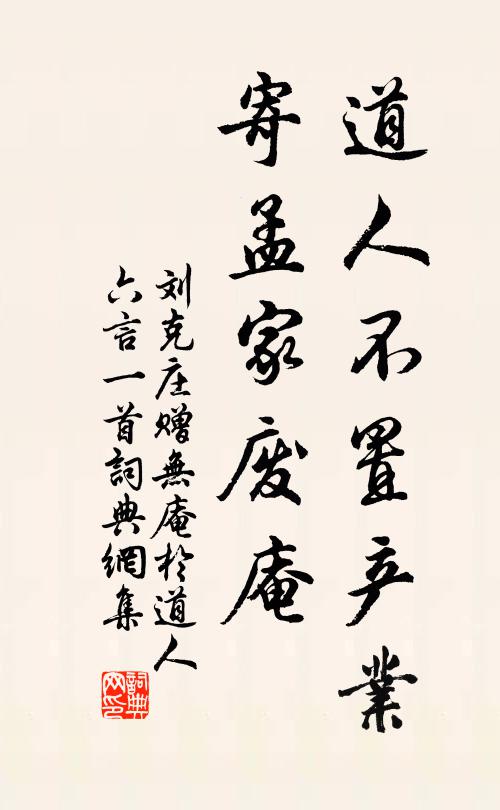 道人不置产業
寄孟家废庵
刘克庄赠無庵於道人
六言一首詞典網集
詞典网印